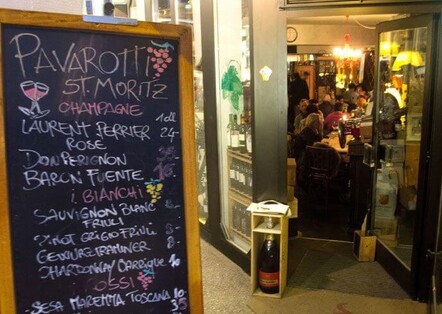 PAVAROTTI
ST. MORITZ
CHAMPAGNE
1dl
LAURENT PERRIER 24.-
ROSE
DON PERIGNON
BARON FUENTE
i BIANCHI
SAUVIGNON BLANC
FRIULI
PINOT GRIGIO FRIULI
GEWÜRZTRAMINER
CHARDONNAY BARRIQUE 10.-
SESA MAREMMA TOSCANA 10.-